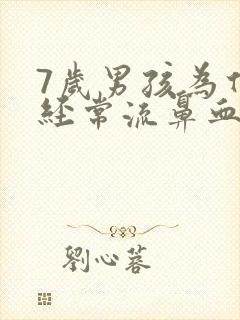 7歲男孩為
經常流鼻血
劉心蓉